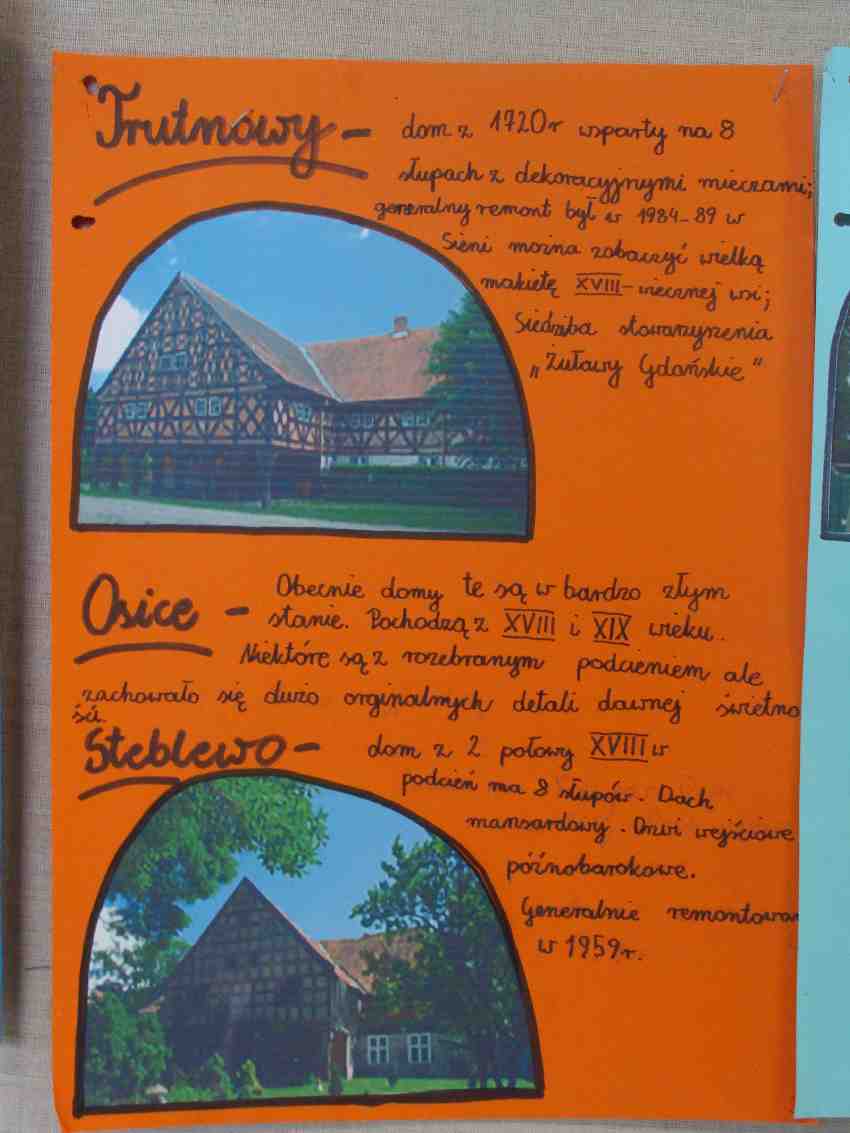 Trutnowy - dom z 1720r wsparty na 8
słupach z dekoracyjnymi mieczami;
generalny remont był w 1984-89 w
Sieni można zobaczyć wielką
makietę XVIII-wiecznej wsi;
Siedziba stowarzyszenia
„Żuławy Gdańskie"
Osice - Obecnie domy te są w bardzo złym
stanie. Pochodzą z XVIII i XIX wieku.
Niektóre są z rozebranym podcieniem ale
zachowało się dużo orginalnych detali dawnej świetno
ści.
Steblewo - dom z 2 połowy XVIII w
podcień ma 8 słupów. Dach
mansardowy. Drzwi wejściowe
późnobarokowe.
Generalnie remontowan
w 1959r.